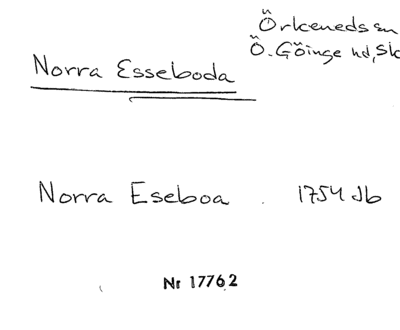 Örkeneds sn
Ö. Göinge hd, Sk
Norra Esseboda
Norra Eseboa. 1754 Jb
Nr 17762